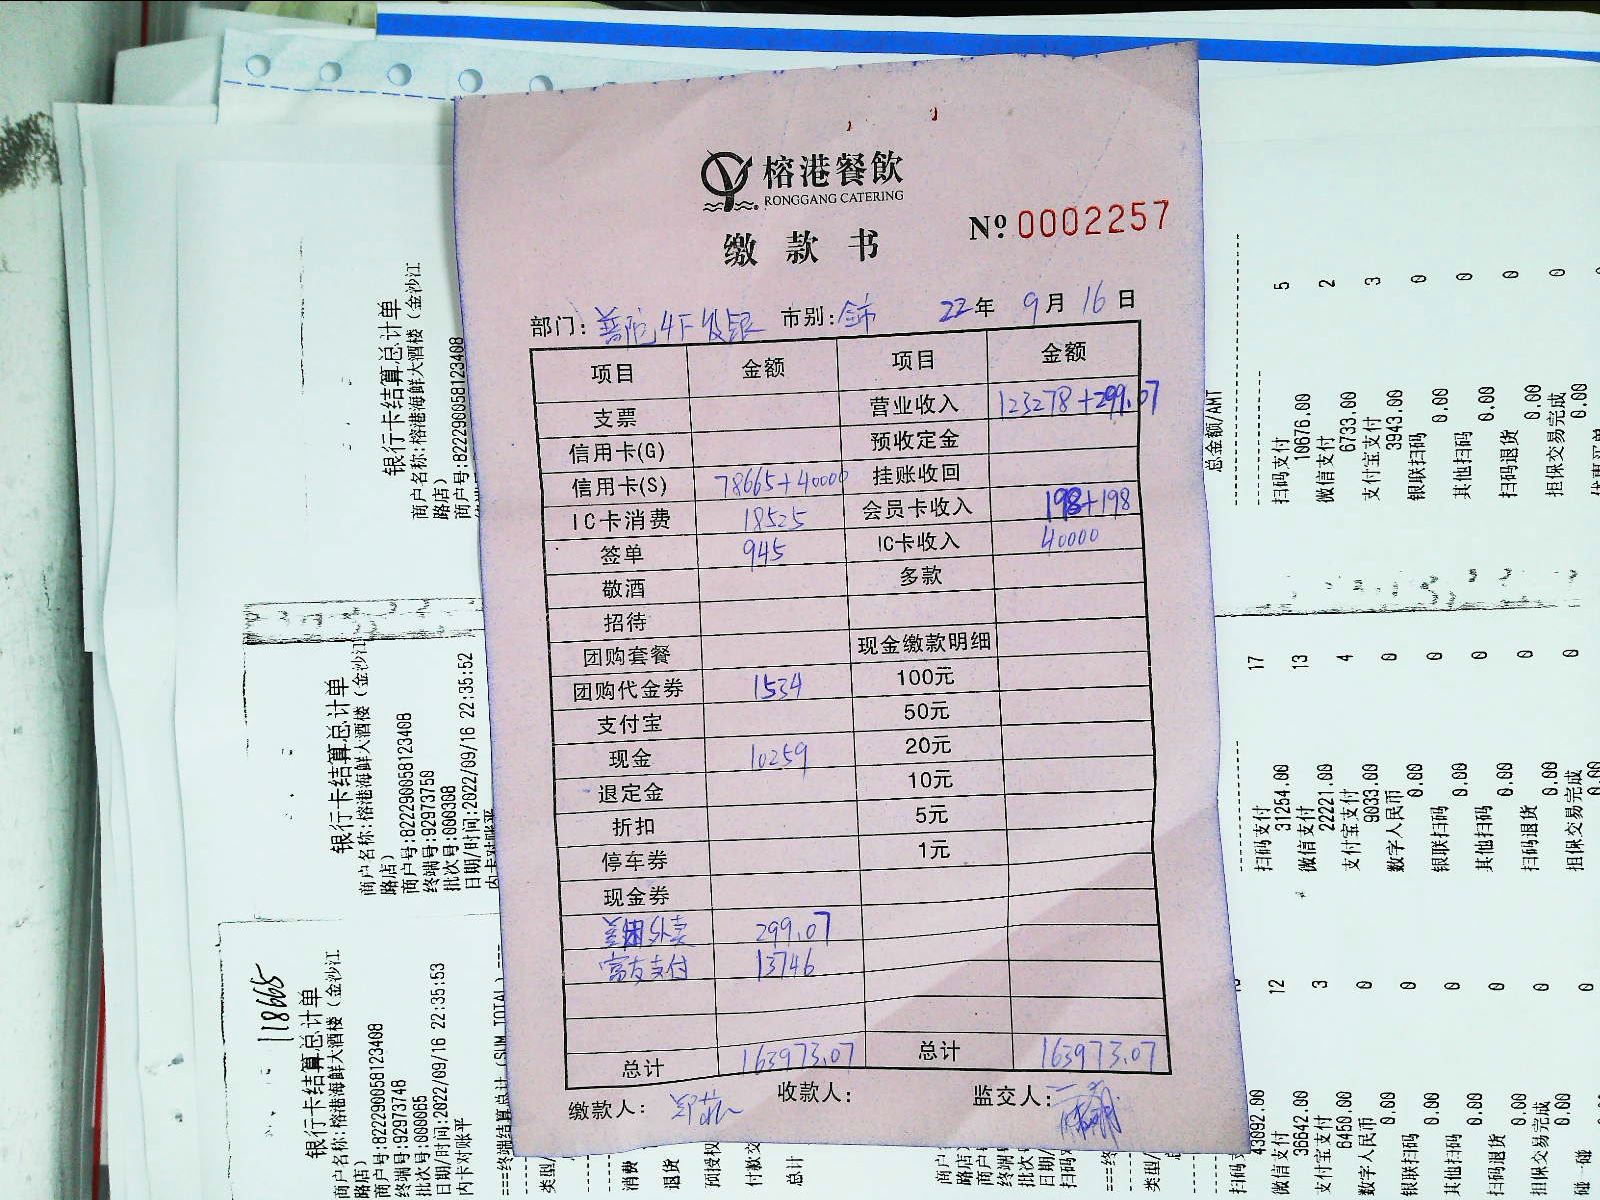 榕港餐飲
RONGGANG CATERING
缴款书
№ 0002257
部门: 普陀4F收银 市别: 全市 22年 9月 16日
项目 金额 项目 金额
支票 营业收入 123278+299.07
信用卡(G) 预收定金
信用卡(S) 78665+40000 挂账收回
IC卡消费 18525 会员卡收入 198+198
签单 945 IC卡收入 40000
敬酒 多款
招待
团购套餐 现金缴款明细
团购代金券 1534 100元
支付宝 50元
现金 10259 20元
退定金 10元
折扣 5元
停车券 1元
现金券
299.07
富友支付 13746
总计 163973.07 总计 163973.07
缴款人: 收款人: 监交人:
银行卡结算总计单
商户名称:榕港海鲜大酒楼(金沙江
路店)
商户号:822290058123408
银行卡结算总计单
商户名称:榕港海鲜大酒楼(金沙江
路店)
商户号:822290058123408
终端号:92973750
批次号:000308
日期/时间:2022/09/16 22:35:52
内卡对账平
118665
银行卡结算总计单
商户名称:榕港海鲜大酒楼(金沙江
路店)
商户号:822290058123408
终端号:92973748
批次号:000065
日期/时间:2022/09/16 22:35:53
内卡对账平
===终端结算总计(SUM TOTAL)===
类型/
消费
退货
预授权
付款交
总计
总金额/AMT
扫码支付 5
10676.00
微信支付 2
6733.00
支付宝支付 3
3943.00
银联扫码 0
0.00
其他扫码 0
0.00
扫码退货 0
0.00
担保交易完成 0
0.00
扫码支付 17
31254.00
微信支付 13
22221.00
支付宝支付 4
9033.00
数字人民币 0
0.00
银联扫码 0
0.00
其他扫码 0
0.00
扫码退货 0
0.00
担保交易完成 0
扫码支
43092.00
微信支付 12
36642.00
支付宝支付 3
6450.00
数字人民币 0
0.00
银联扫码 0
0.00
其他扫码 0
0.00
扫码退货 0
0.00
担保交易完成 0
0.00